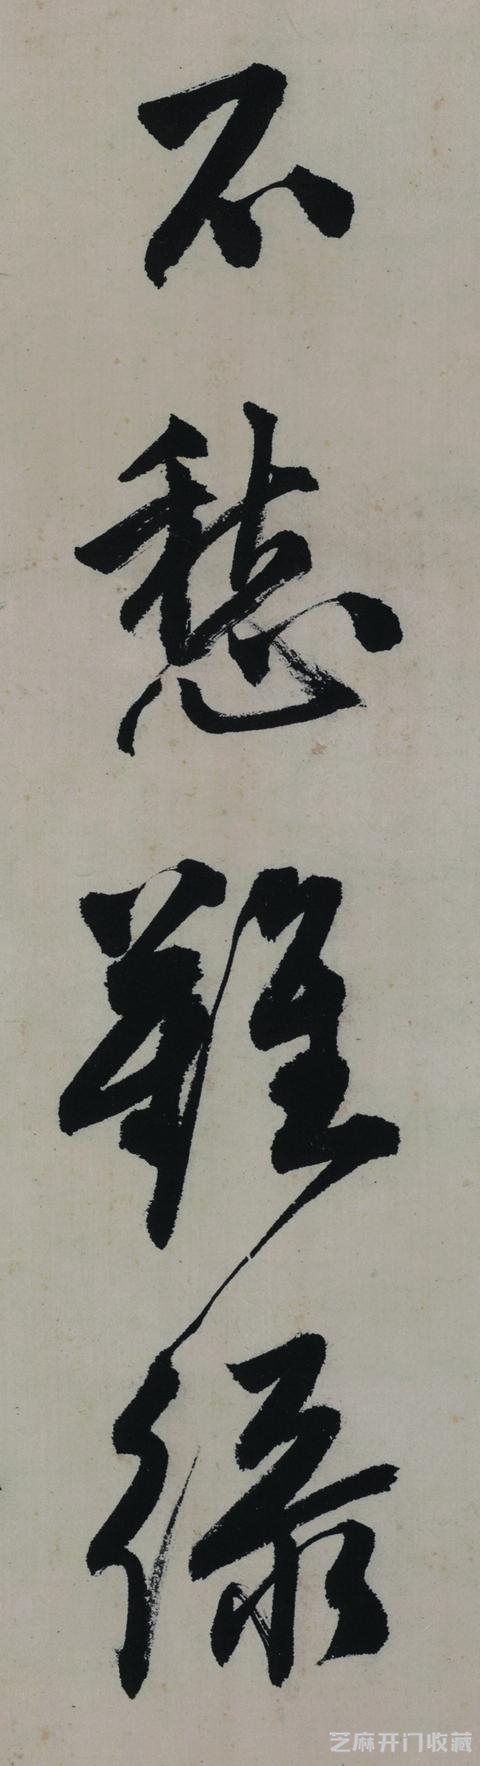 不
愁
難
緑
芝麻开门收藏